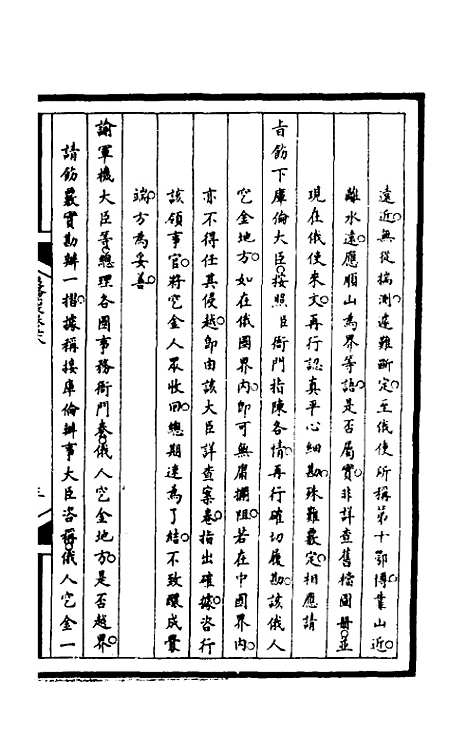 遠近無從揣測遽難斷定至俄使所稱第十鄂博業山近
離水遠應順山為界等語是否屬實非詳查舊檔圖冊並
現在俄使來文再行認真平心細勘殊難覈定相應請
旨飭下庫倫大臣按照臣衙門指陳各情再行確切履勘該俄人
挖金地方如在俄國界內即可無庸攔阻若在中國界內
亦不得任其侵越即由該大臣詳查案卷指出確據咨行
該領事官將挖金人眾收回總期速為了結不致釀成釁
端方為妥善
諭軍機大臣等總理各國事務衙門奏俄人挖金地方是否越界
請飭覈實勘辦一摺據稱接庫倫辦事大臣咨稱俄人挖金一